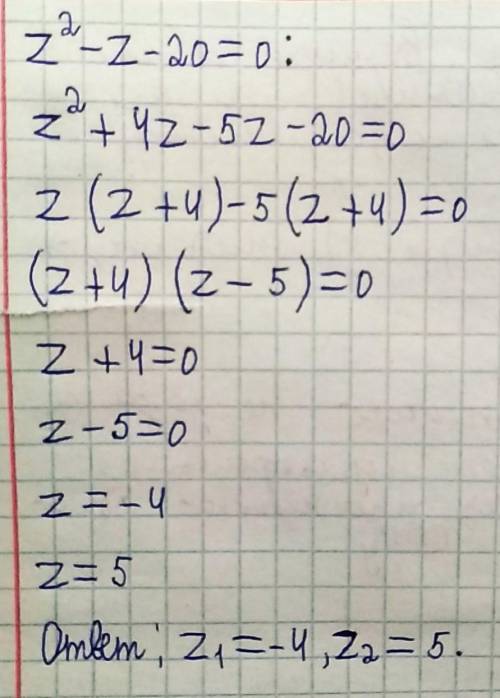 z² - z - 20 = 0:
z² + 4z - 5z - 20 = 0
z (z + 4) - 5 (z + 4) = 0
(z + 4) (z - 5) = 0
z + 4 = 0
z - 5 = 0
z = -4
z = 5
Ответ: z₁ = -4, z₂ = 5.